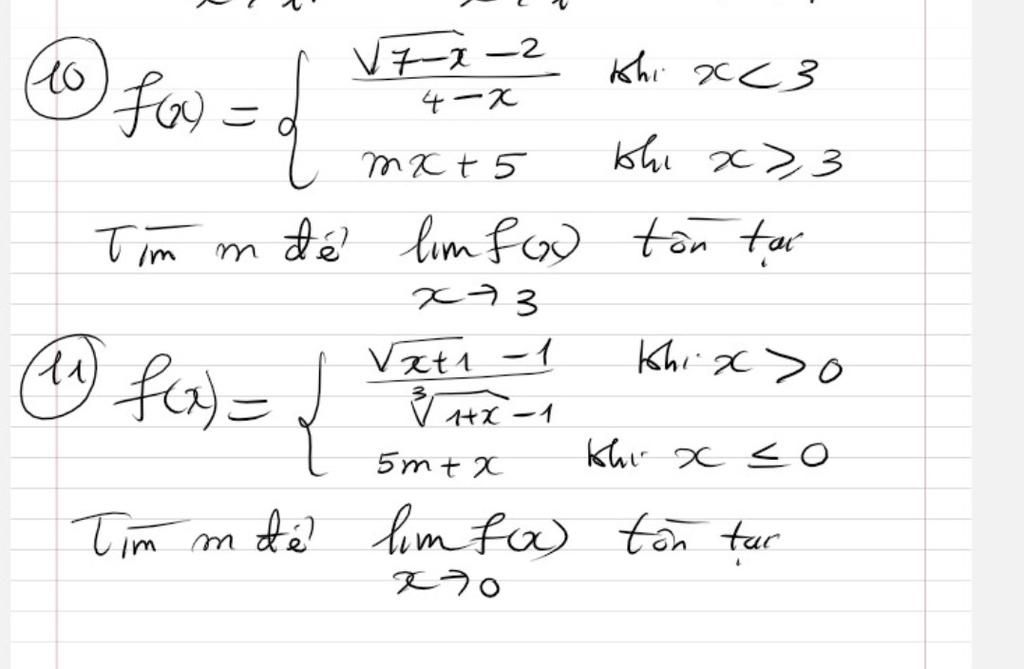 ⑩ f(x) = { (√(7-x) - 2)/(4-x) khi x < 3
mx + 5 khi x ⩾ 3
Tìm m để lim f(x) tồn tại
x → 3
⑪ f(x) = { (√(x+1) - 1)/(∛(1+x) - 1) khi x > 0
5m + x khi x ≤ 0
Tìm m để lim f(x) tồn tại
x → 0